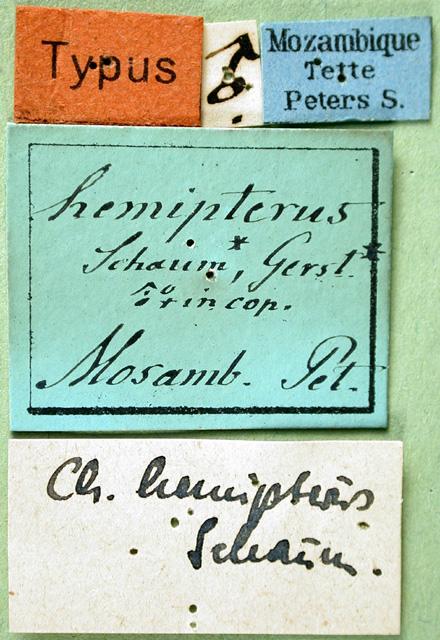 Typus
Mozambique
Tette
Peters S.
hemipterus
Schaum*, Gerst.*
in cop.
Mosamb. Pet.
Ch. hemipterus
Schaum.